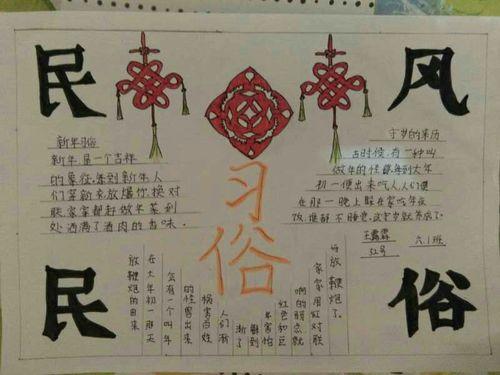 民
风
新年习俗
新年是一个吉祥
的象征,每到新年人
们穿新衣放爆竹,换对
联,家家都赶做年菜到
处洒满了酒肉的香味。
守岁的来历
古时候,有一种叫
做年的怪兽,每到大年
初一便出来吃人,人们便
在那一晚上躲在家吃年夜
饭,
王霞霖
52号
六.1班
习
俗
民
俗
放鞭炮的由来
在大年初一那天
会有一个叫年
的怪兽出来
祸害百姓
人们渐
渐了
年害怕
红色和
响的
家家用红对联
放鞭炮了。